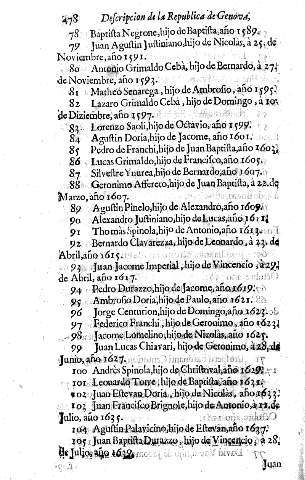 478 Descripcion de la Republica de Genova,
78 Baptista Negrone, hijo de Baptista, año 1589.
79 Juan Agustin Justiniano, hijo de Nicolas, à 25. de
Noviembre, año 1591.
80 Antonio Grimaldo Cebà, hijo de Bernardo, à 27.
de Noviembre, año 1593.
81 Matheo Senarega, hijo de Ambrosio, año 1595.
82 Lazaro Grimaldo Cebà, hijo de Domingo, à 10.
de Diziembre, año 1597.
83 Lorenzo Saoli, hijo de Octavio, año 1599.
84 Agustin Doria, hijo de Jacome, año 1601.
85 Pedro de Franchi, hijo de Juan Baptista, año 1603.
86 Lucas Grimaldo, hijo de Francisco, año 1605.
87 Silvestre Ynurea, hijo de Bernardo, año 1607.
88 Geronimo Assereto, hijo de Juan Baptista, à 22. de
Marzo, año 1607.
89 Agustin Pinelo, hijo de Alexandro, año 1609.
90 Alexandro Justiniano, hijo de Lucas, año 1611.
91 Thomàs Spinola, hijo de Antonio, año 1613.
92 Bernardo Clavarezza, hijo de Leonardo, à 23. de
Abril, año 1615.
93 Juan Jacome Imperial, hijo de Vincencio, à 29.
de Abril, año 1617.
94 Pedro Durazzo, hijo de Jacome, año 1619.
95 Ambrosio Doria, hijo de Paulo, año 1621.
96 Jorge Centurion, hijo de Domingo, año 1623.
97 Federico Franchi, hijo de Geronimo, año 1623.
98 Jacome Lomelino, hijo de Nicolas, año 1625.
99 Juan Lucas Chiavari, hijo de Geronimo, à 28. de
Junio, año 1627.
100 Andrès Spinola, hijo de Christoval, año 1629.
101 Leonardo Torre, hijo de Baptista, año 1631.
102 Juan Estevan Doria, hijo de Nicolas, año 1633.
103 Juan Francisco Brignole, hijo de Antonio, à 11. de
Julio, año 1635.
104 Agustin Palavicino, hijo de Estevan, año 1637.
105 Juan Baptista Durazzo, hijo de Vincencio, à 28.
de Julio, año 1639.
Juan